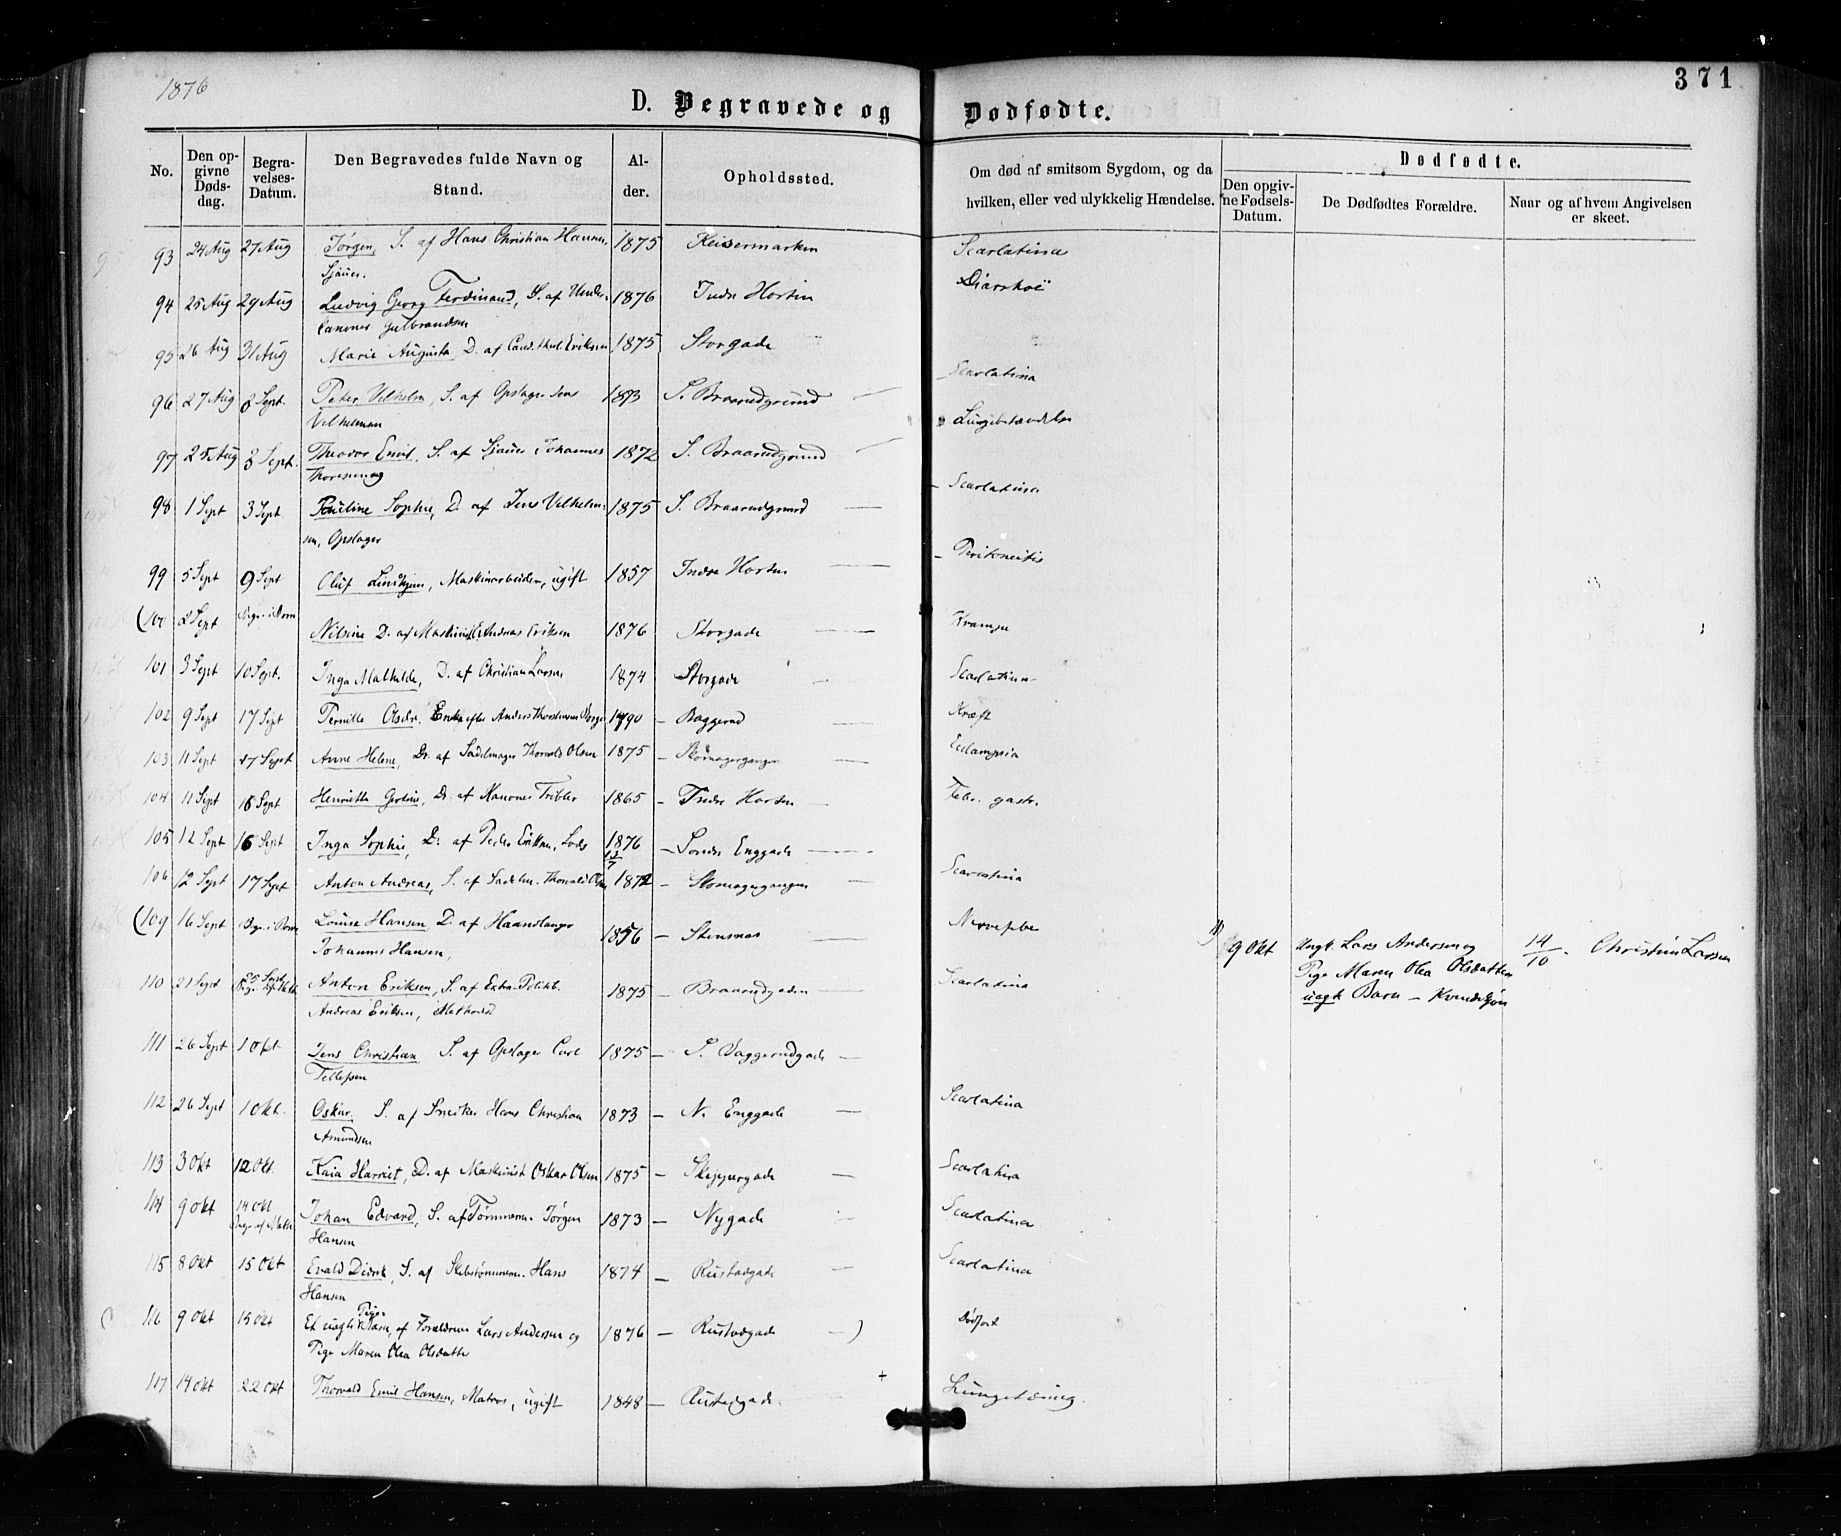 1876
371
D. Begravede og Dødfødte.
No.
Den opgivne Dødsdag.
Begravelses-Datum.
Den Begravedes fulde Navn og Stand.
Alder.
Opholdssted.
Om død af smitsom Sygdom, og da hvilken, eller ved ulykkelig Hændelse.
Dødfødte.
Den opgivne Fødsels-Datum.
De Dødfødtes Forældre.
Naar og af hvem Angivelsen er skeet.
93 24 Aug 27 Aug Jørgen, S. af Hans Christian Hansen, 1875 Keisermarken Scarlatina
Sjauer.
94 25 Aug 29 Aug Ludvig Georg Ferdinand, S. af Under- 1876 Indre Horten Diarrhoë
canoner Gulbrandsen
95 26 Aug 31 Aug Marie Augusta D. af Cand. theol. Eriksen 1875 Storgade
96 27 Aug 3 Sept. Peter Vilhelm, S. af Opslager Jens 1873 S. Braarudgrund Scarlatina
Vilhelmsen
97 25 Aug 3 Sept. Theodor Emil, S. af Sjauer Johannes 1872 S. Braarudgrund Lungebetændelse
Thoresen
98 1 Sept 3 Sept. Pauline Sophie, D. af Jens Vilhelm- 1875 S. Braarudgrund Scarlatina
sen, Opslager
99 5 Sept 9 Sept Oluf Lindhjem, Maskinarbeider, ugift 1857 Indre Horten Peritoneitis
(100 2 Sept Begr. i Borre Nilsine D. af Maskinist Andreas Eriksen 1876 Storgade Krampe
101 3 Sept 10 Sept. Inga Mathilde, D. af Christian Larsen 1874 Storgade Scarlatina
102 9 Sept 17 Sept Pernille Olsdr. Enke efter Anders Thorstensen 1790 — Baggerud Kræft
103 11 Sept 17 Sept Anne Helene, Dr. af Sadelmager Thorvald Olsen 1875 — Skomagergangen Eclampsia
104 11 Sept 16 Sept Henriette Gertine, Dr. af Kanoner Tribler 1865 — Indre Horten Febr. gastr.
105 12 Sept 16 Sept Inga Sophie, D. af Peder Eriksen, Lods 1876 — Søndre Enggade
106 12 Sept 17 Sept Anton Andreas, S. af Sadelm. Thorvald Olsen 1872 — Skomagergangen Scarlatina
(109 16 Sept Begr. i Borre Louise Hansen D. af Haandlanger 1856 — Stensnes Nervefeber
Johannes Hansen,
9 Okt Ungk. Lars Andersen og 14/10 - Christian Larsen
Pige Maren Olea Olsdatters
uægt Barn — Kvindekjøn
110 21 Sept Anton Eriksen, S. af Extra-Politib. 1875 — Braarudgaden Scarlatina
Andreas Eriksen, Methodist
111 26 Sept 1 Okt Jens Christian S. af Opslager Carl 1875 — S. Baggerudgade
Tellefsen
112 26 Sept 1 Okt. Oskar S. af Snedker Hans Christian 1873 — N. Enggade Scarlatina
Amundsen
113 3 Okt 12 Okt. Kaia Harriet, D. af Maskinist Oskar Olsen 1875 — Skippergade Scarlatina
114 9 Okt 14 Okt Johan Edvard, S. af Tømmerm. Jørgen 1873 — Nygade Scarlatina
Hansen
115 8 Okt 15 Okt Evald Didrik, S. af Skibstømmerm. Hans 1874 — Rustadgade Scarlatina
Hansen
116 9 Okt 15 Okt Et uægte Pigebarn, af Forældrene Lars Andersen og 1876 — Rustadgade —) Dødfødt
Pige Maren Olea Olsdatter
117 14 Okt 22 Okt Thorvald Emil Hansen, Matros, ugift 1848 — Rustadgade. Lungetæring.